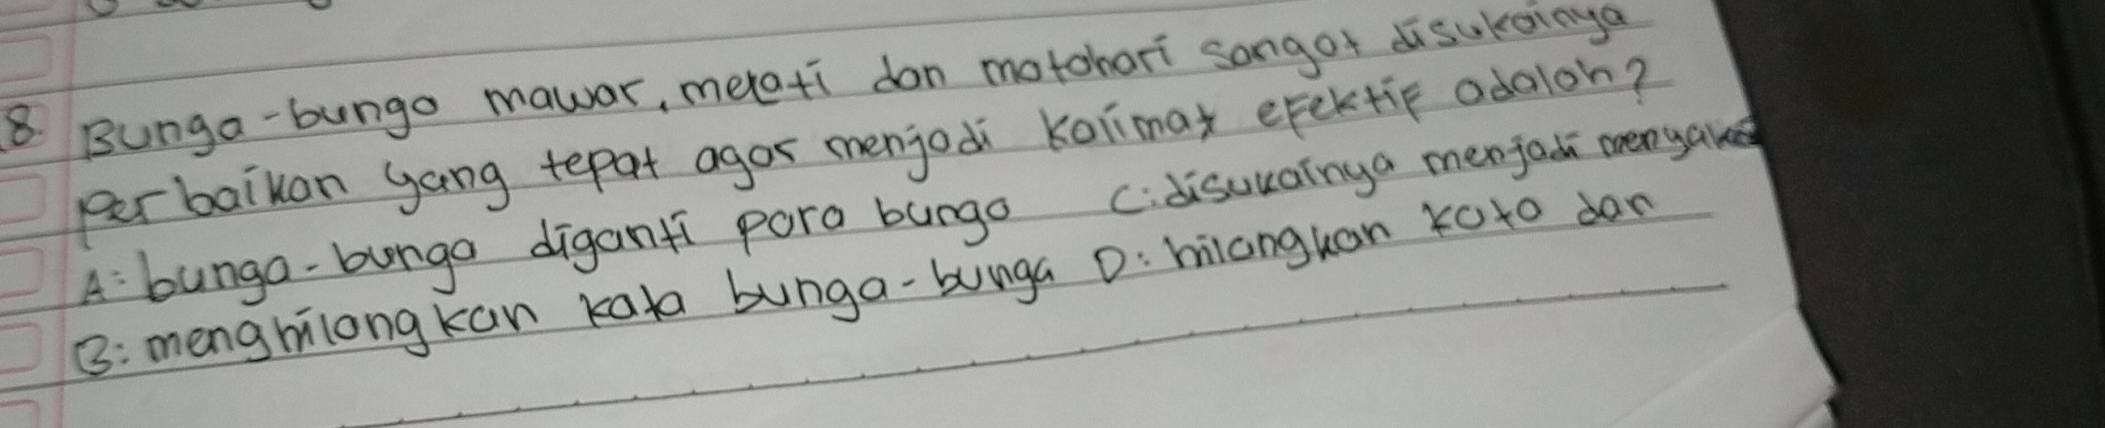 8. Bunga-bunga mawar, melati dan matahari sangat disukainya
Perbaikan yang tepat agar menjadi kalimat efektif adalah?
A: bunga-bunga diganti para bunga C: disukainya menjadi
B: menghilangkan kata bunga-bunga D: hilangkan kata dan